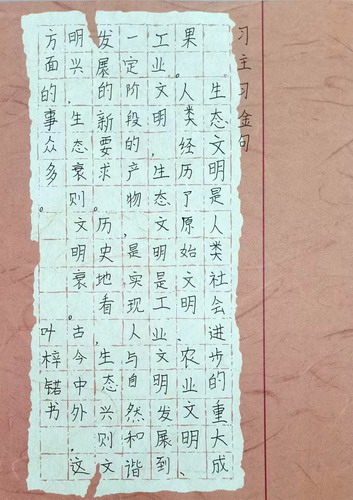 习主习金句
生态文明是人类社会进步的重大成
果。人类经历了原始文明、农业文明、
工业文明，生态文明是工业文明发展到
一定阶段的产物，是实现人与自然和谐
发展的新要求。历史地看，生态兴则文
明兴，生态衰则文明衰。古今中外，这
方面的事众多。 叶梓锘书